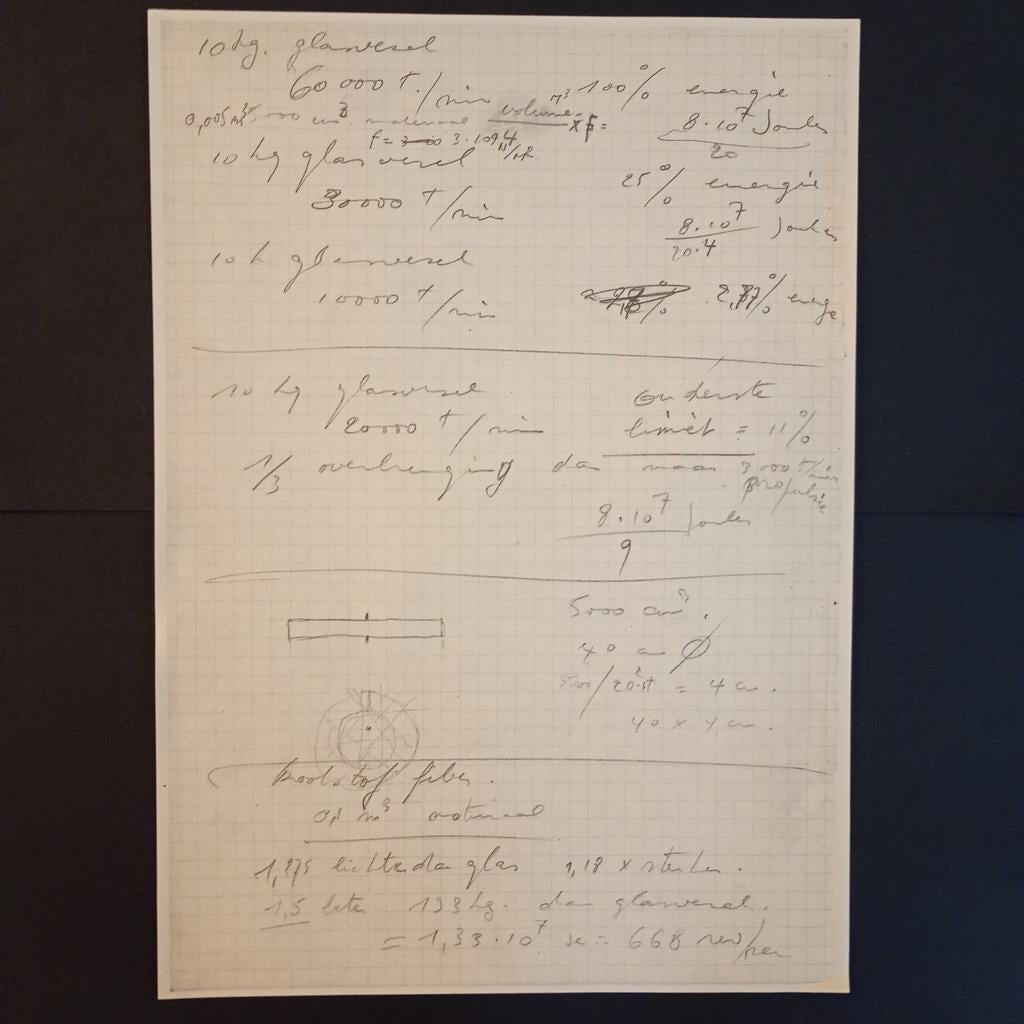 10 kg. glasvesel
60 000 t./min 100% energie
0,005 m³ 5000 cm³ materiaal volume m³ x F = 8·10⁷ Joules / 20
10 kg glasvesel
30000 t/min 25% energie
8·10⁷ / 20·4 Joules
10 k glasvesel
10000 t/min 2,77% energie
10 kg glasvesel onderste
20000 t/min limiet = 11%
1/3 overbrenging dan maar 3 000 t/min
propulsie
8·10⁷ / 9 Joules
5000 cm³.
40 cm Ø
5000/20²π = 4 cm.
40 x 4 cm.
koolstof fiber.
0,1 m³ materiaal
1,375 lichter dan glas 1,18 x sterker.
1,5 beter 133 kg. dan glasvesel.
= 1,33·10⁷ = 668 rev/sec